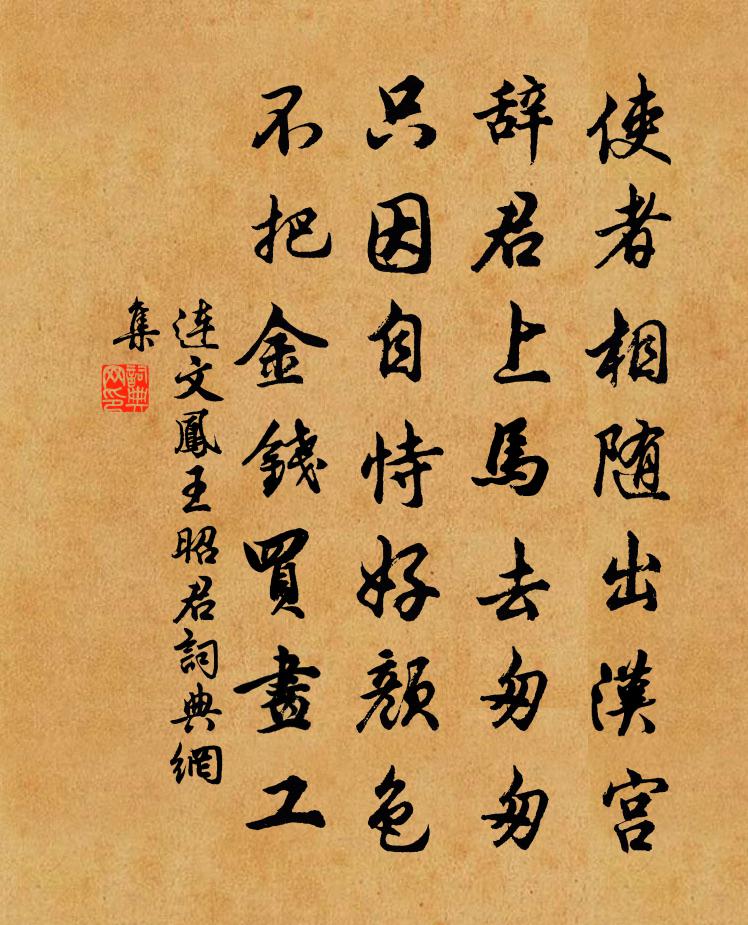 使者相随出漢宮
辞君上馬去匆匆
只因自恃好顔色
不把金錢買畫工
連文鳳王昭君詞典網
集
詞典
网印